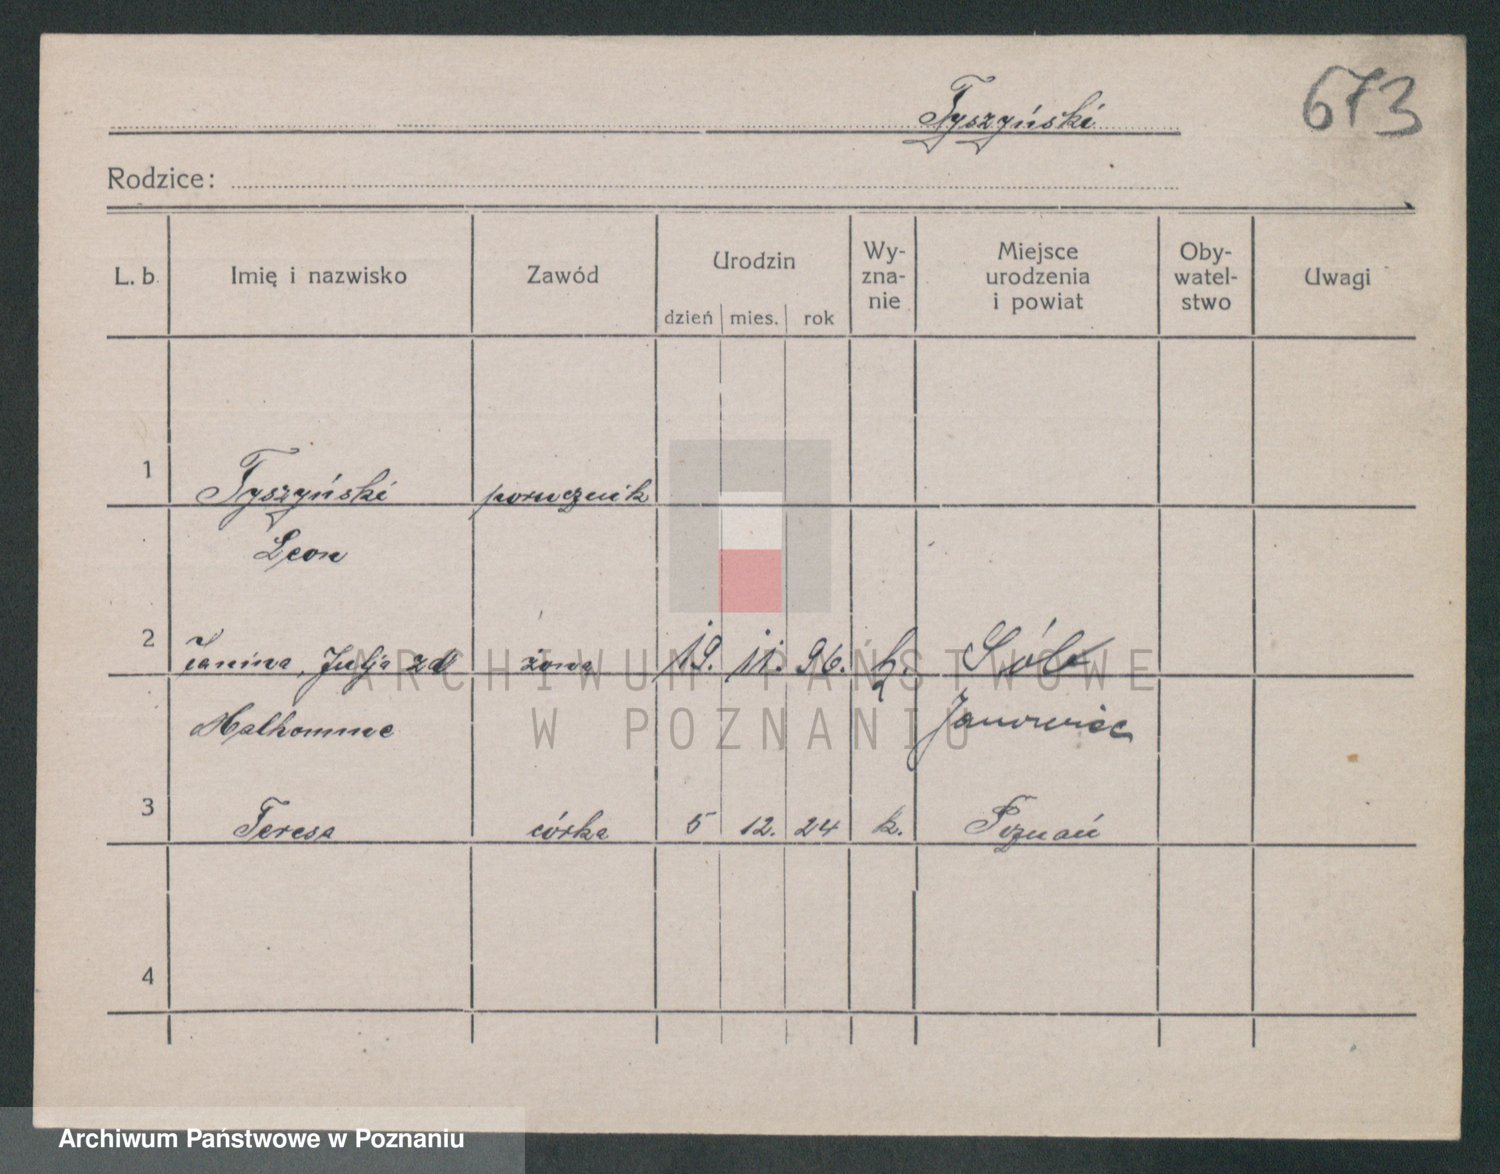 Tyszyński
673
Rodzice:
L. b. Imię i nazwisko Zawód Urodzin dzień mies. rok Wy-zna-nie Miejsce urodzenia i powiat Oby-watel-stwo Uwagi
1 Tyszyński porucznik
Leon
2 Janina, Julja zd żona 19. 11. 96. k. Sól
Malhomme
3 Teresa córka 5 12. 24 k. Poznań
4
ARCHIWUM PAŃSTWOWE
W POZNANIU
Archiwum Państwowe w Poznaniu